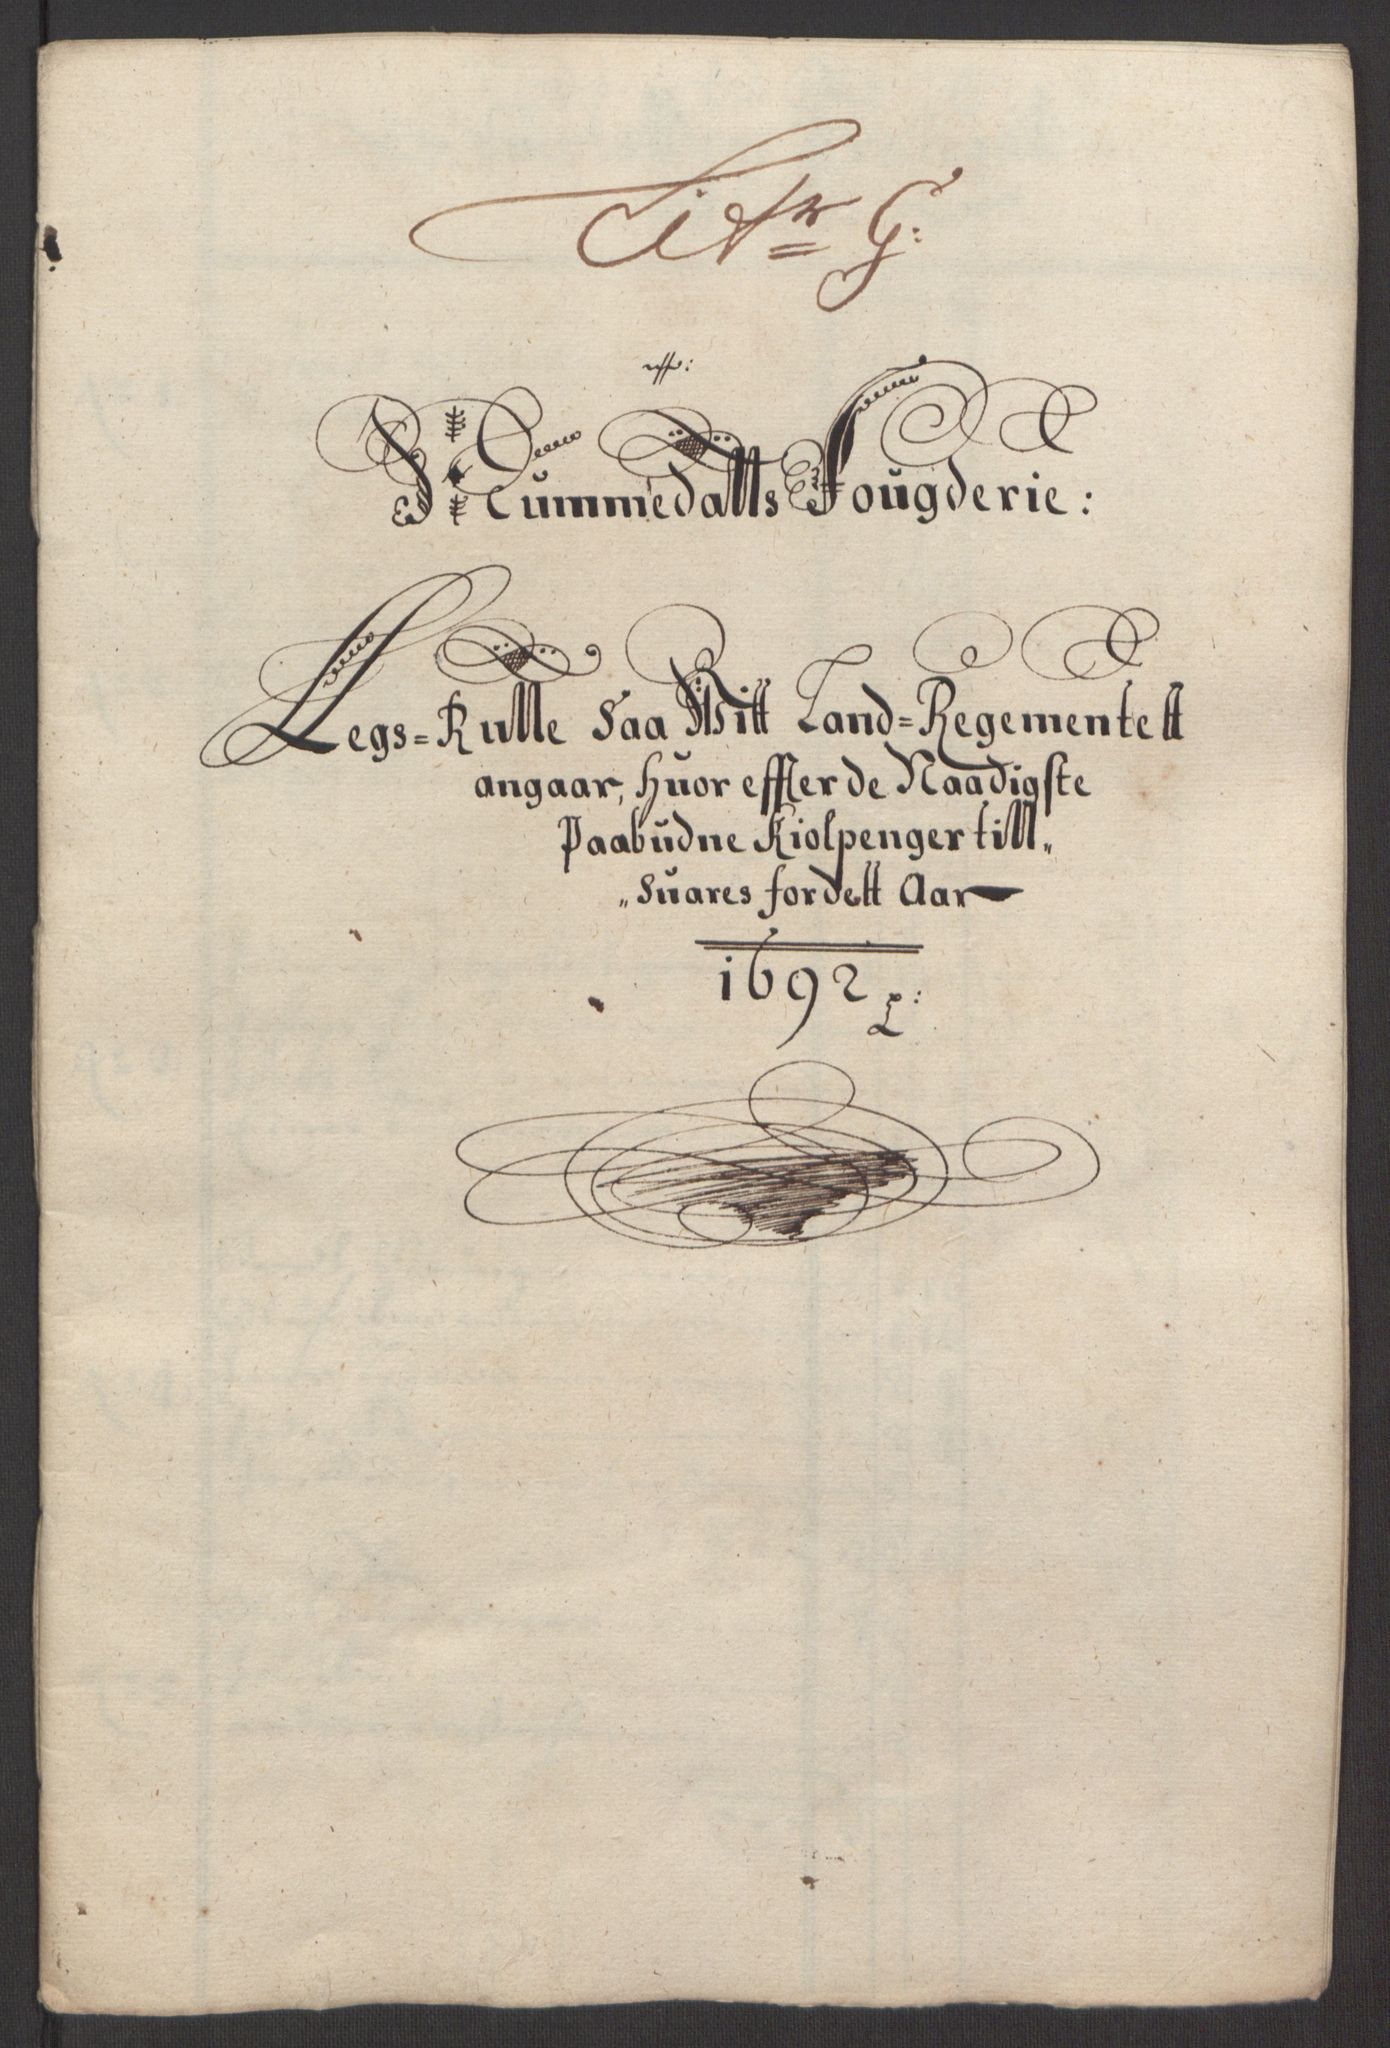 Litr G:
Nummedalls Fougderie:
Legs=Rulle Saa Witt Land=Regementett
angaar, Huor effter de Naadigste
Paabudne Kiolpenger till„
„Suares for dett Aar
1692